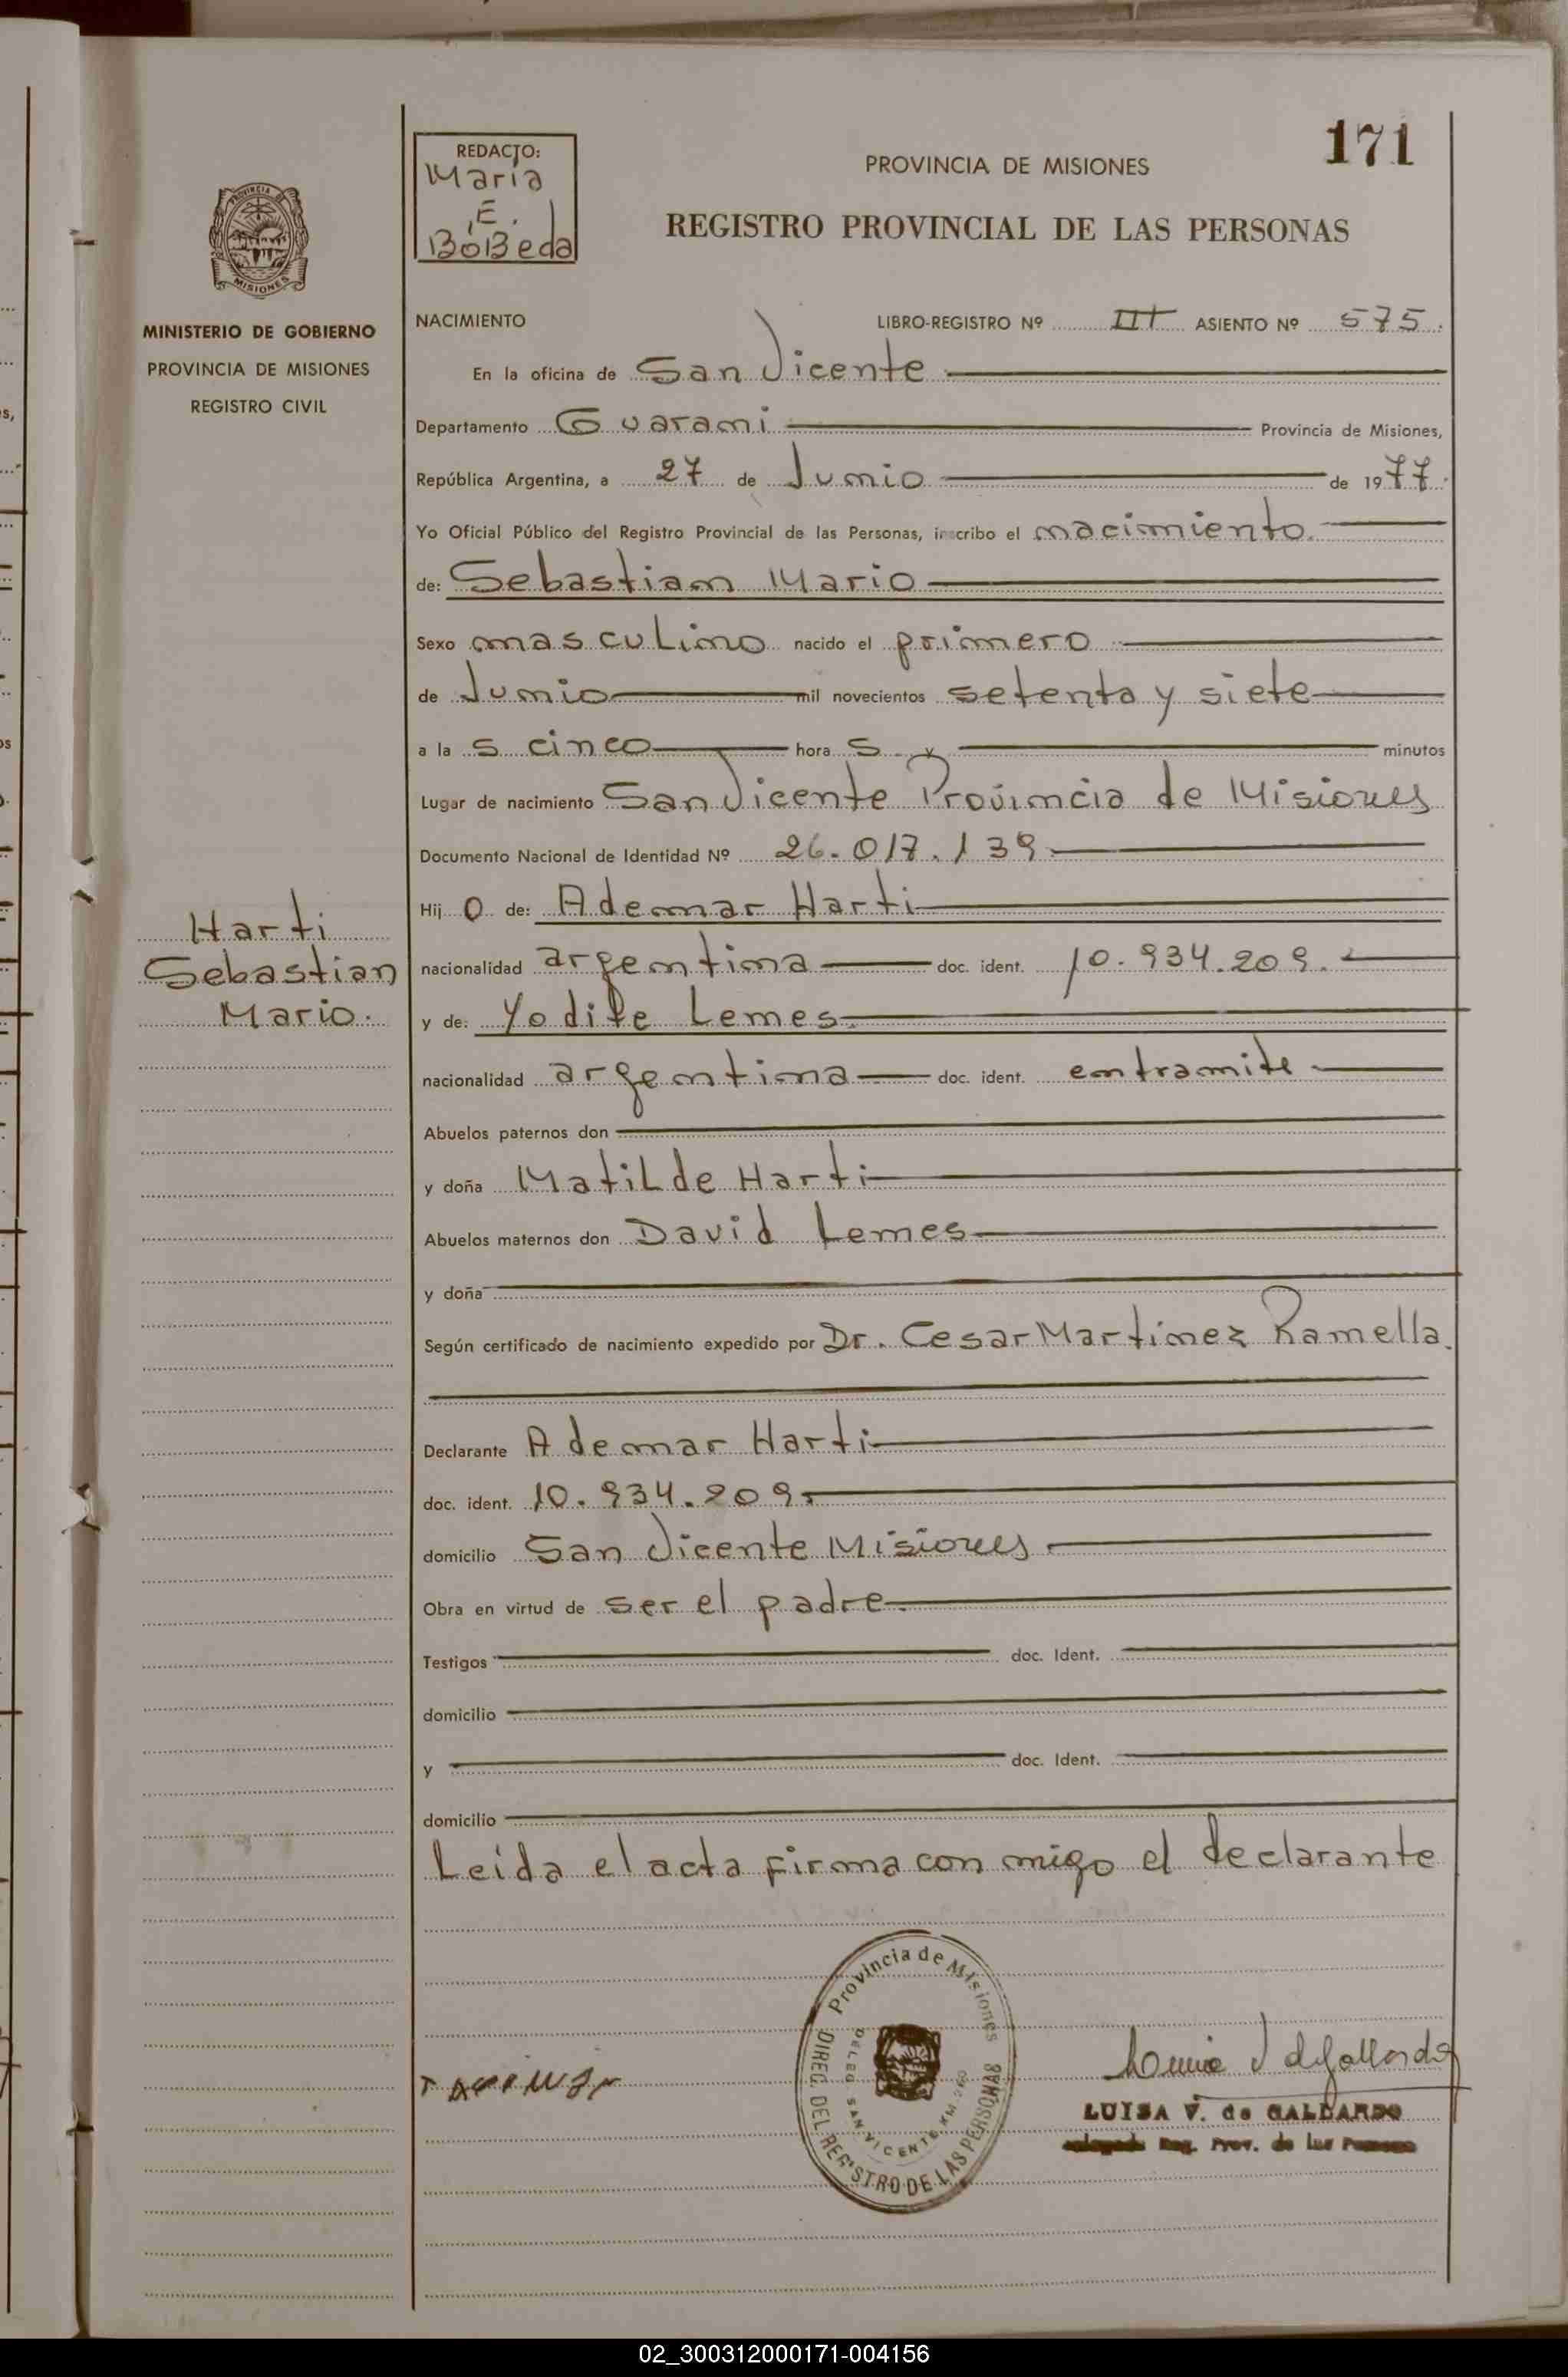 171
REDACTO:
Maria
E.
BoBeda
PROVINCIA DE MISIONES
REGISTRO PROVINCIAL DE LAS PERSONAS
PROVINCIA DE
MISIONES
MINISTERIO DE GOBIERNO
PROVINCIA DE MISIONES
REGISTRO CIVIL
Harti
Sebastian
Mario.
NACIMIENTO LIBRO-REGISTRO Nº III ASIENTO Nº 575.
En la oficina de San Vicente
Departamento Guarani Provincia de Misiones,
República Argentina, a 27 de Junio de 1977.
Yo Oficial Público del Registro Provincial de las Personas, inscribo el nacimiento.
de: Sebastian Mario
Sexo masculino nacido el primero
de Junio mil novecientos setenta y siete
a la s cinco hora s y minutos
Lugar de nacimiento San Vicente Provincia de Misiones
Documento Nacional de Identidad Nº 26.017.139
Hij o de: Ademar Harti
nacionalidad argentina doc. ident. 10.934.209.
y de: Yodite Lemes.
nacionalidad argentina doc. ident. entramite
Abuelos paternos don
y doña Matilde Harti
Abuelos maternos don David Lemes
y doña
Según certificado de nacimiento expedido por Dr. Cesar Martinez Ramella.
Declarante Ademar Harti
doc. ident. 10.934.209.
domicilio San Vicente Misiones
Obra en virtud de ser el padre.
Testigos doc. Ident.
domicilio
y doc. Ident.
domicilio
Leida el acta firma con migo el declarante
Provincia de Misiones
DIREC. DEL REGISTRO DE LAS PERSONAS
DELEG. SAN VICENTE KM. 260
LUISA V. de GALLARDO
Reg. Prov. de las Personas
02_300312000171-004156